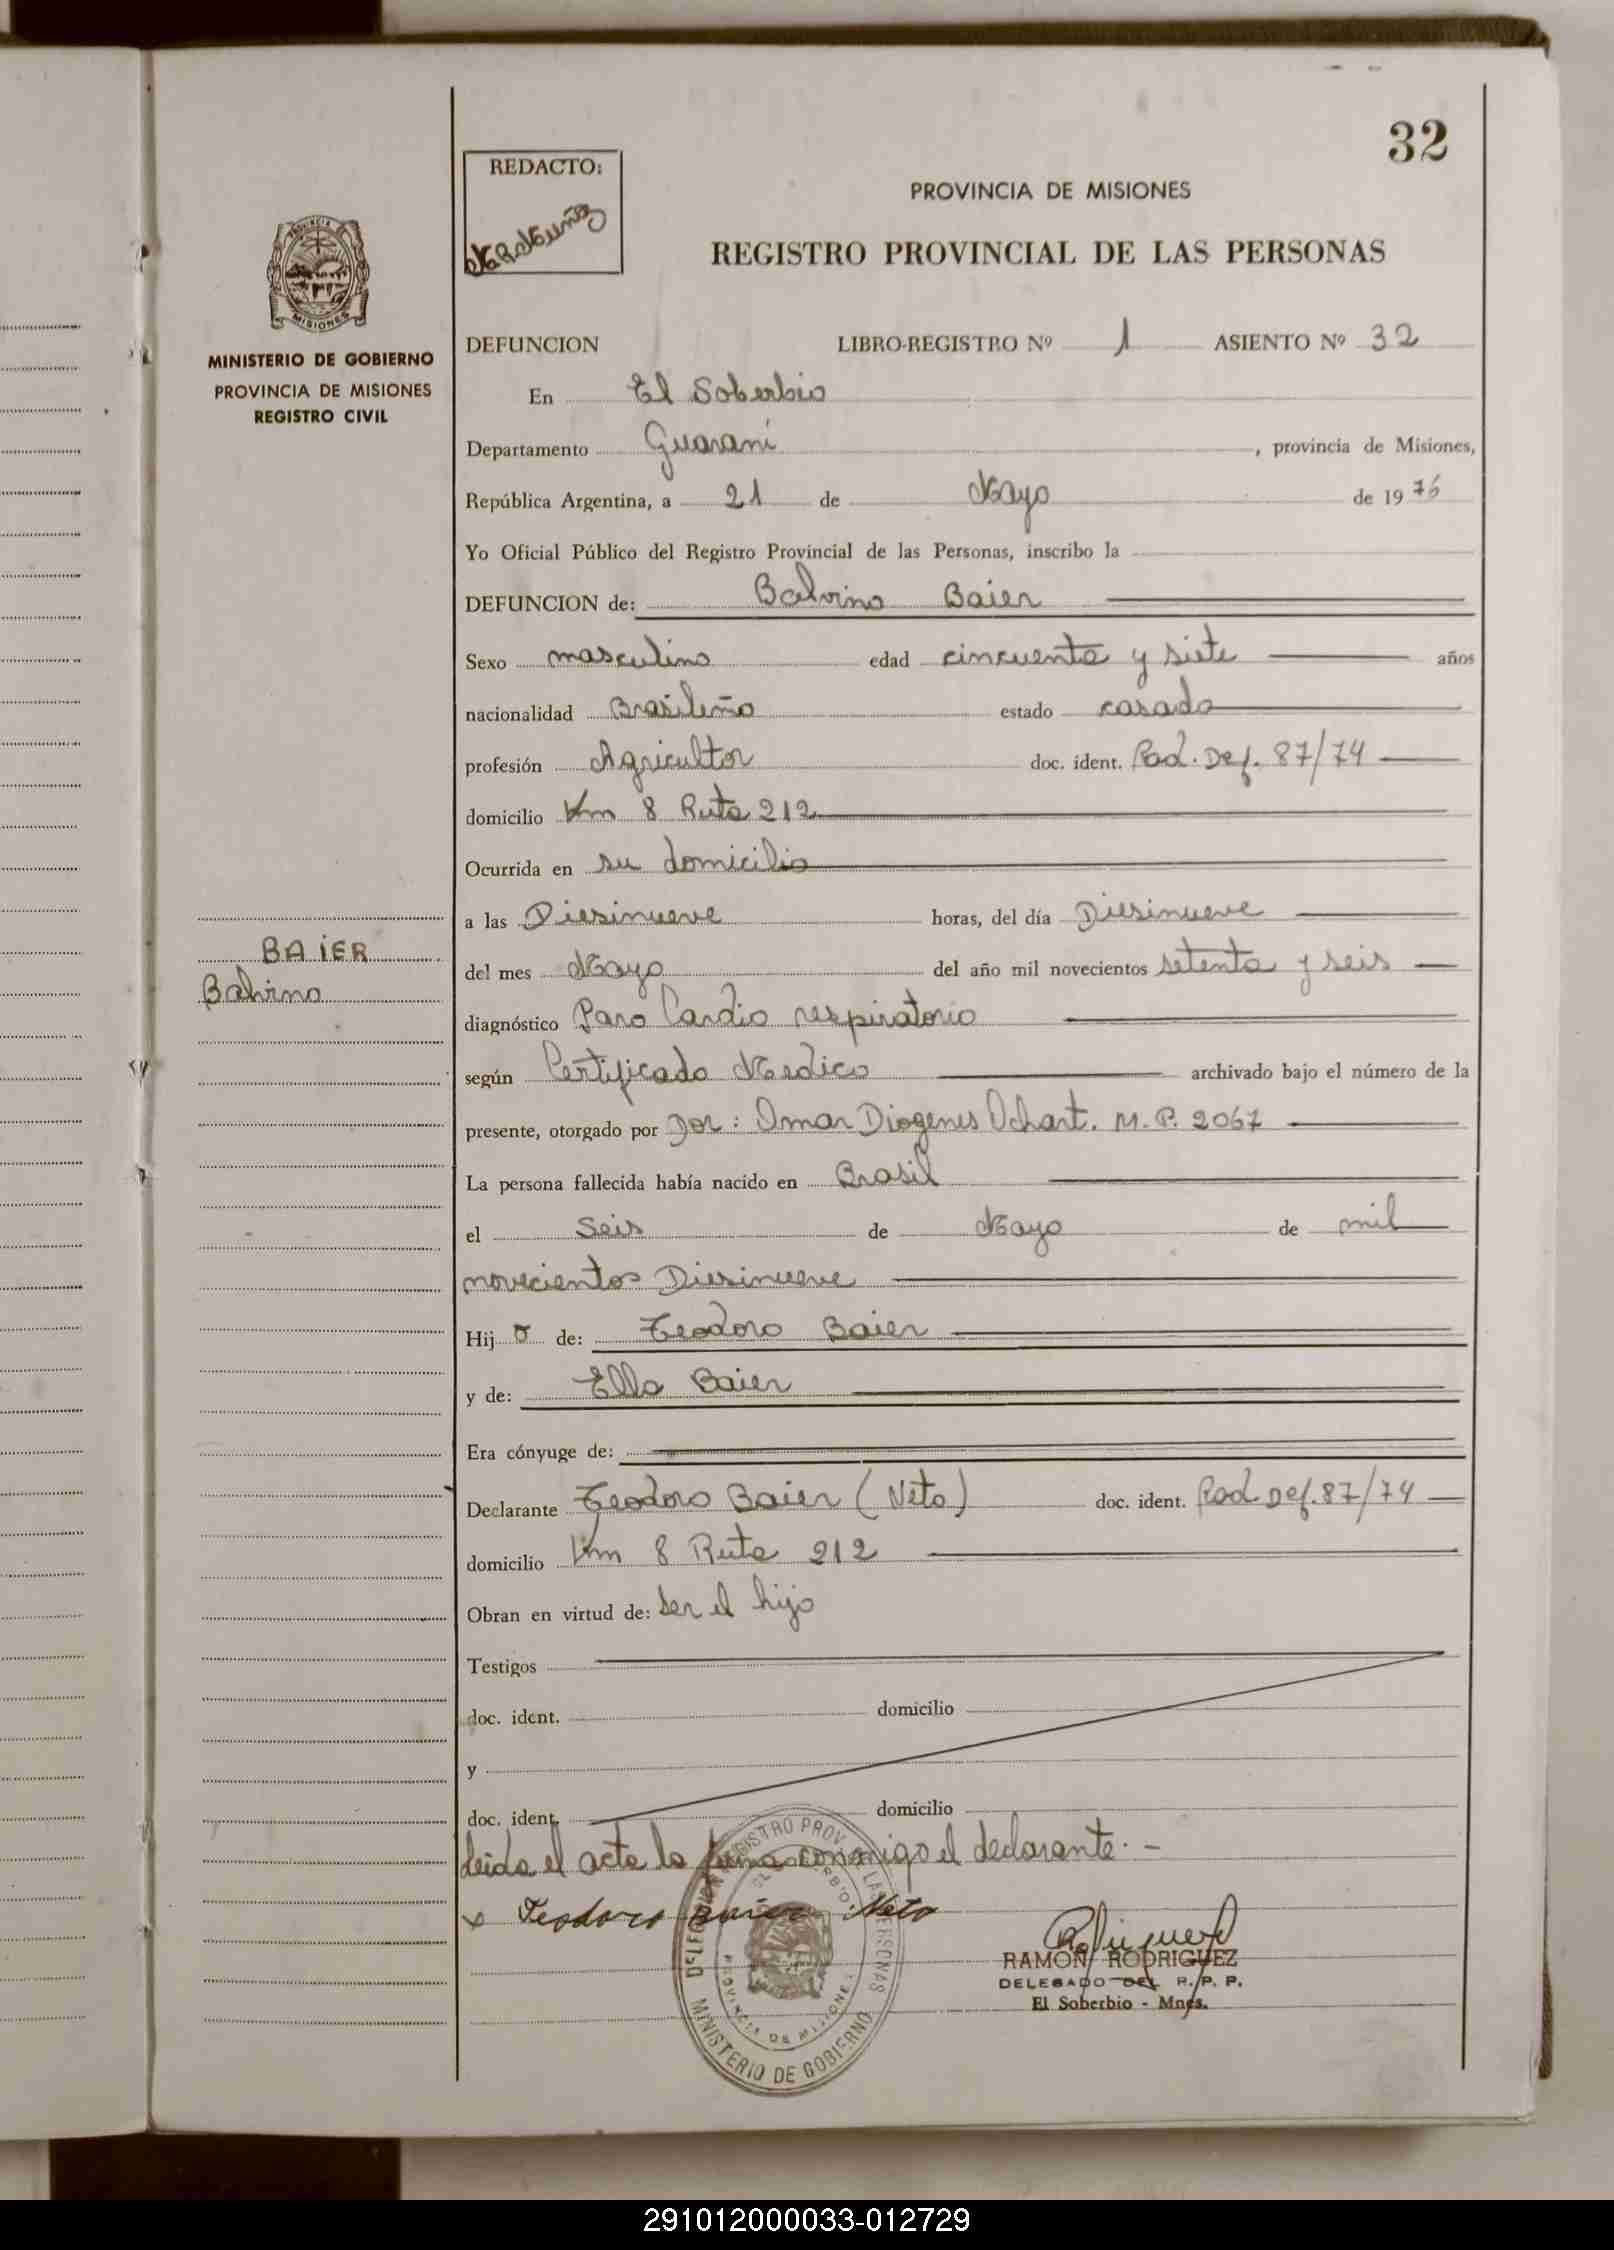 32
REDACTO:
PROVINCIA DE MISIONES
REGISTRO PROVINCIAL DE LAS PERSONAS
PROVINCIA
MISIONES
MINISTERIO DE GOBIERNO
PROVINCIA DE MISIONES
REGISTRO CIVIL
DEFUNCION LIBRO-REGISTRO Nº 1 ASIENTO Nº 32
En El Soberbio
Departamento Guaraní, provincia de Misiones,
República Argentina, a 21 de Mayo de 1976
Yo Oficial Público del Registro Provincial de las Personas, inscribo la
DEFUNCION de: Balvino Baier
Sexo masculino edad cincuenta y siete años
nacionalidad Brasileño estado casado
profesión Agricultor doc. ident. Rad. Def. 87/74
domicilio Km 8 Ruta 212
Ocurrida en su domicilio
a las Diesinueve horas, del día Diesinueve
BAIER
Balvino
del mes Mayo del año mil novecientos setenta y seis
diagnóstico Paro Cardio respiratorio
según Certificado Medico archivado bajo el número de la
presente, otorgado por Dor: Omar Diogenes Ochart. M.P. 2067
La persona fallecida había nacido en Brasil
el Seis de Mayo de mil
novecientos Diesinueve
Hijo de: Teodoro Baier
y de: Ella Baier
Era cónyuge de:
Declarante Teodoro Baier (Neto) doc. ident. Rad Def. 87/74
domicilio Km 8 Ruta 212
Obran en virtud de: ser el hijo
Testigos
doc. ident. domicilio
y
doc. ident. domicilio
Leida el acta la firma conmigo el declarante.-
x Teodoro Baier Neto
DELEGACION REGISTRO PROV. DE LAS PERSONAS
EL SOBERBIO
PROVINCIA DE MISIONES
MINISTERIO DE GOBIERNO
RAMON RODRIGUEZ
DELEGADO DEL R. P. P.
El Soberbio - Mnes.
291012000033-012729